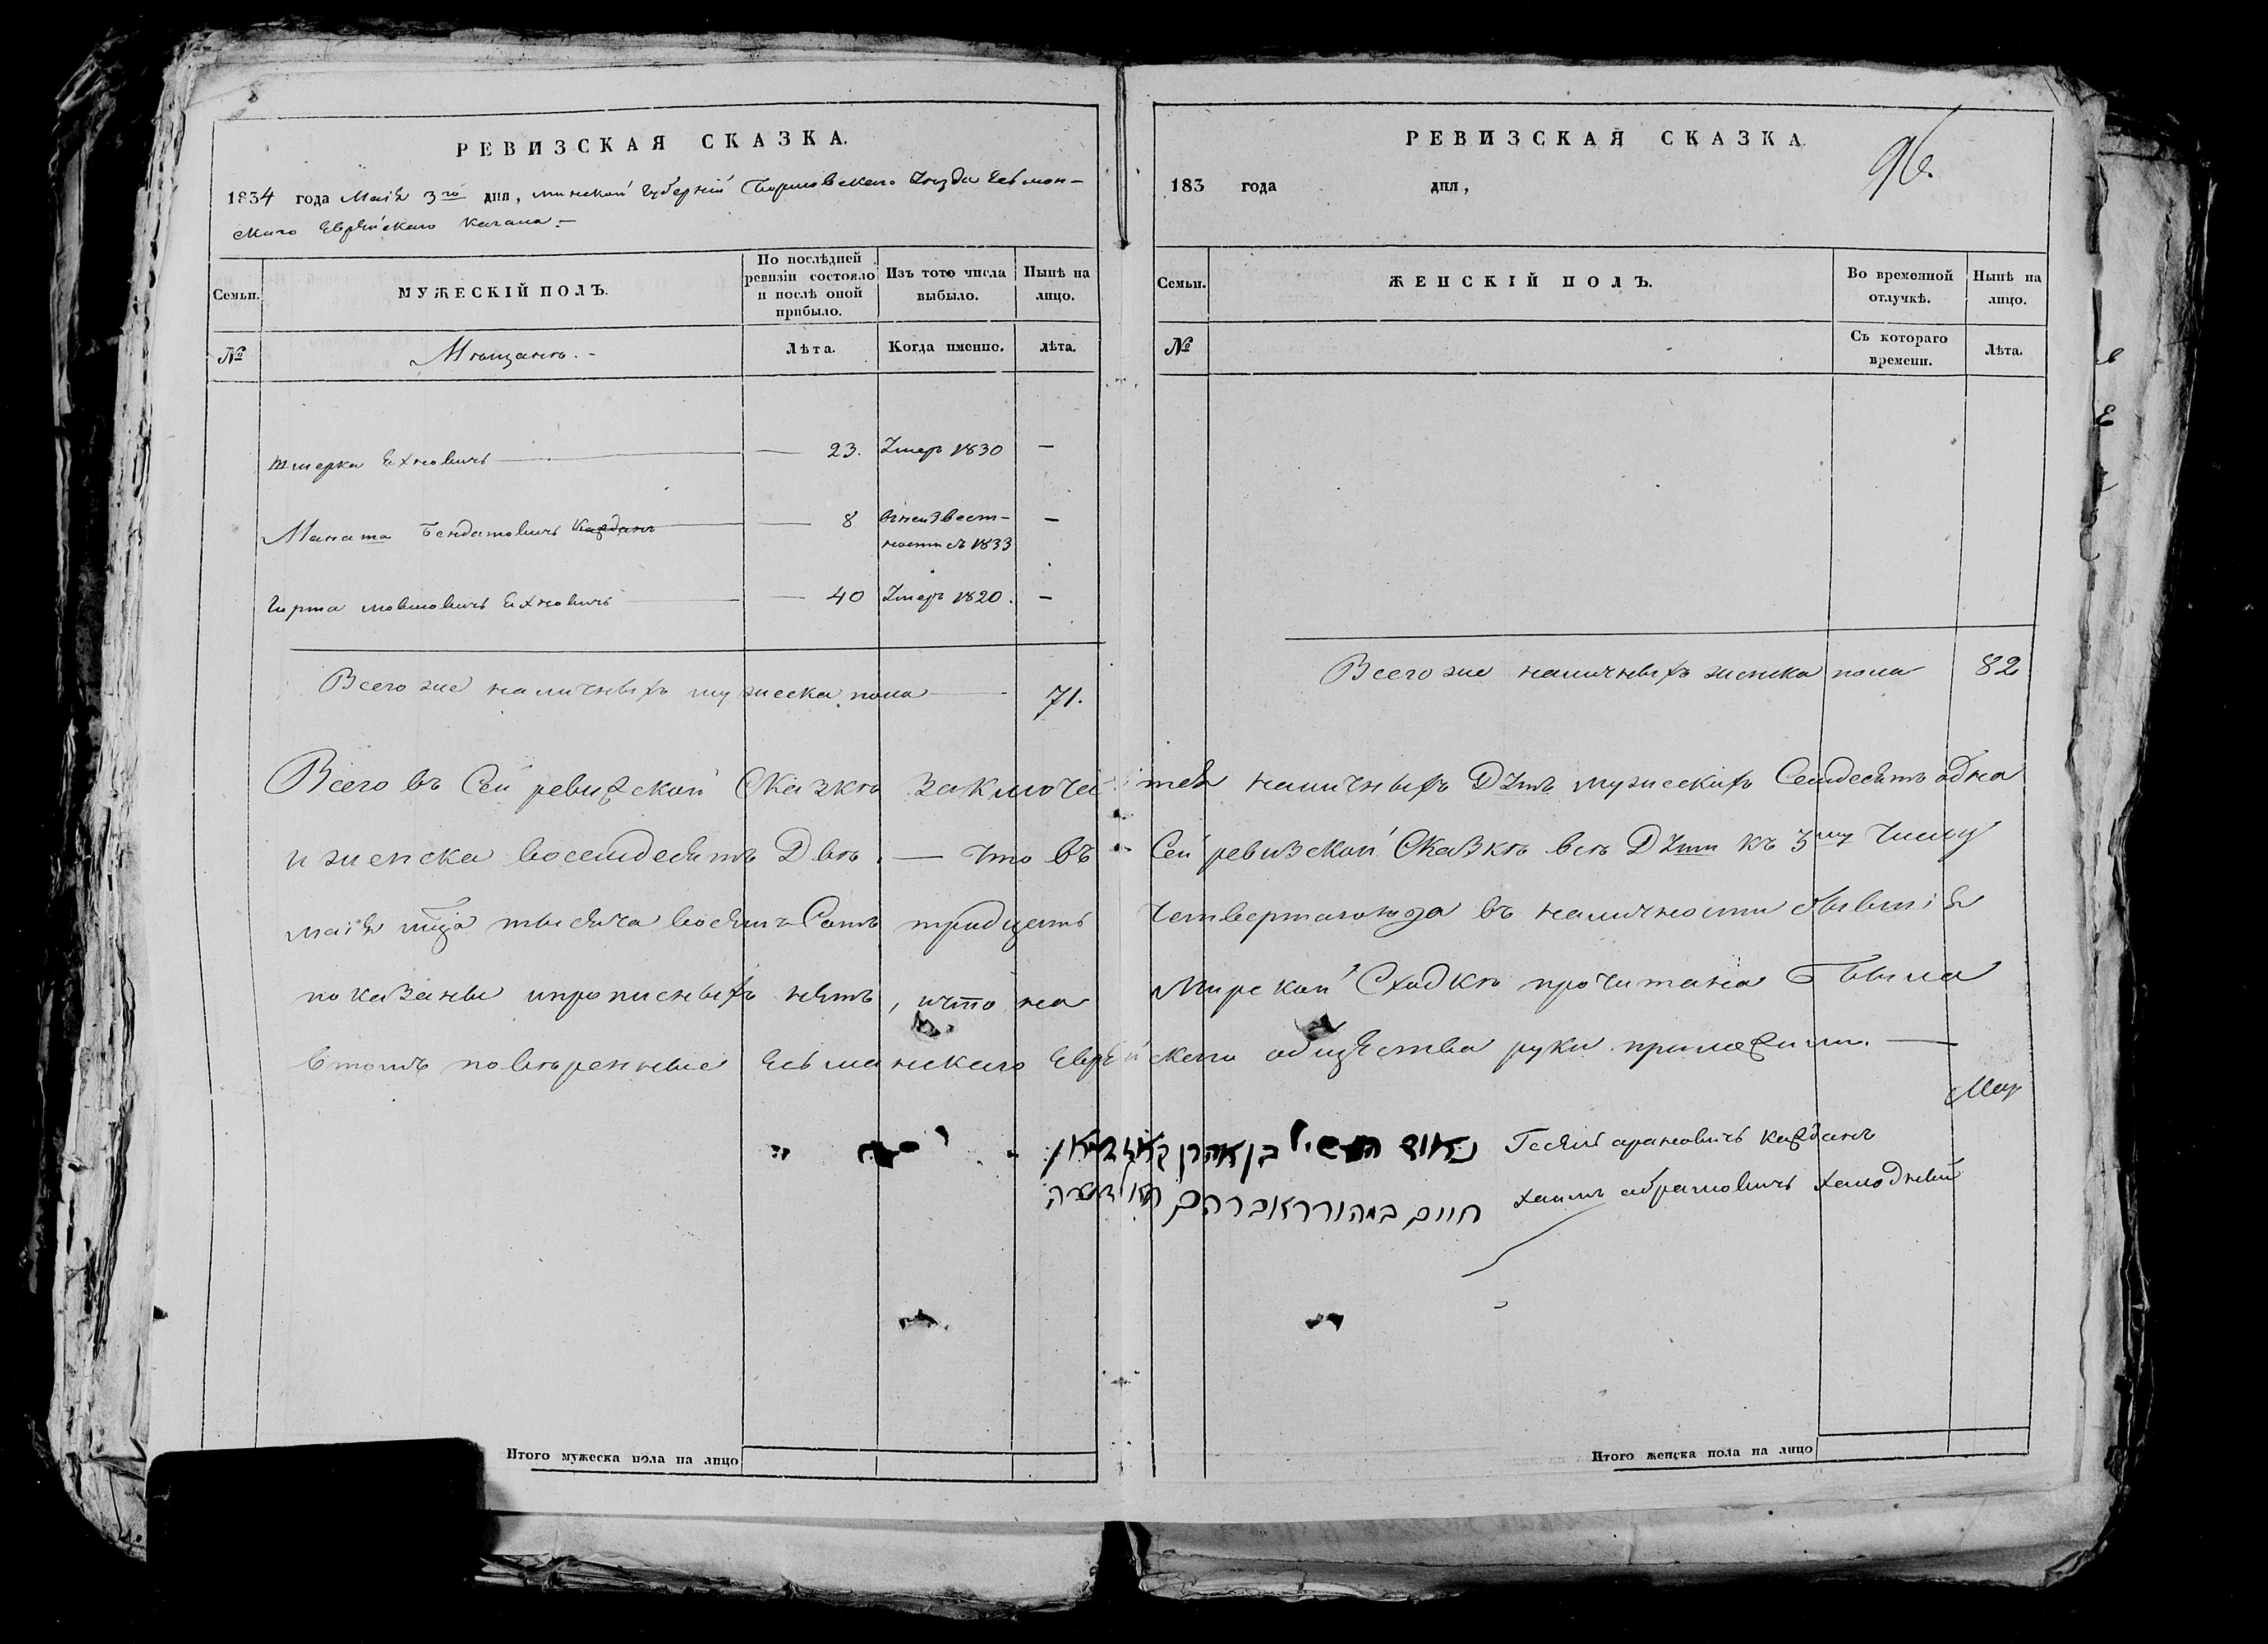 РЕВИЗСКАЯ СКАЗКА.
1834 года Маія 3го дня, минской Губерніи Борисовскаго Уезда Есьмон-
скаго Еврейскаго Кагала.-
Семьи.
МУЖЕСКІЙ ПОЛЪ.
По послѣдней ревизіи состояло и послѣ оной прибыло.
Изъ того числа выбыло.
Нынѣ на лицо.
№
Мещане.-
Лѣта.
Когда именно.
лѣта.
Ехновичъ 23. Умеръ 1830 —
Бендетовичъ Каждан 8 въ неизвест-
ности съ 1833 —
Гирша Мовшовичъ Ехновичъ 40 Умеръ 1820. —
Всего же наличныхъ мужеска пола 71.
РЕВИЗСКАЯ СКАЗКА
96.
183 года дня,
Семьи.
ЖЕНСКІЙ ПОЛЪ.
Во временной отлучкѣ.
Нынѣ на лицо.
№
Съ котораго времени.
Лѣта.
Всего же наличныхъ женска пола 82
Всего въ Сей ревизской Сказкѣ заключается наличныхъ Душъ мужескихъ Семдесятъ одна
и женска восемдесятъ Двѣ. — Что въ Сей ревизской Сказкѣ всѣ Души къ 3му Числу
маія мца тысяча восемъ Сотъ тридцать Четвертаго года въ наличности бывшія
показаны и прописныхъ нетъ, и что на Мирской Сходкѣ прочитана Была
в томъ повѣренные Есьманскаго Еврейскаго общества руки приложили. —
נאום העשיל בן אהרן קאזדאן
Гесель арановичъ каждан
חיים במהורר אברהם
хаимъ абрамовичъ
Итого мужеска пола на лицо
Итого женска пола на лицо